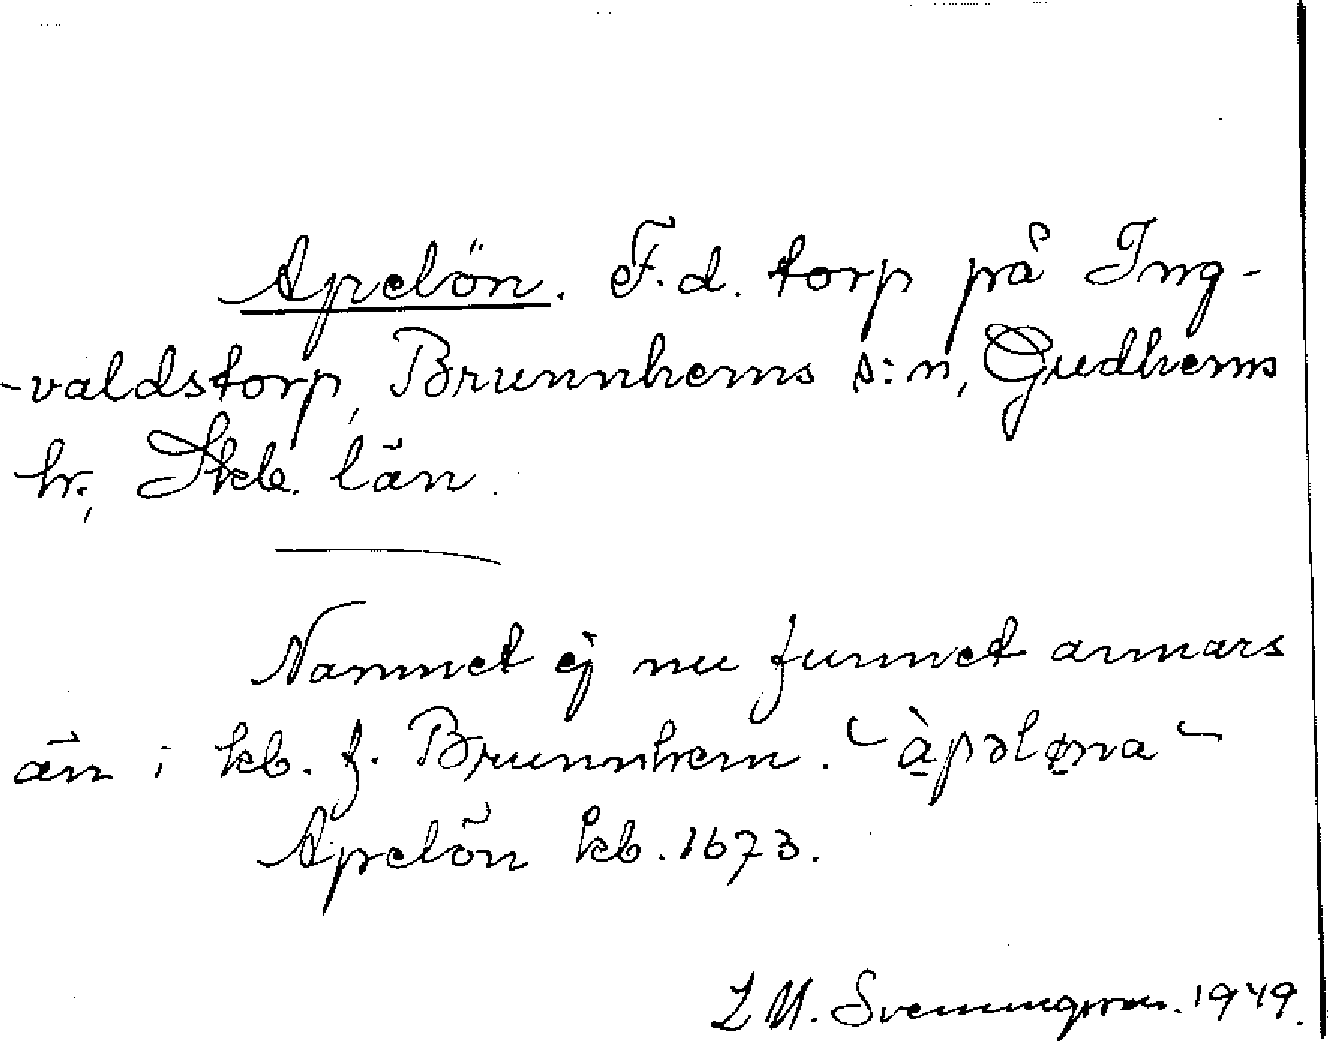 Apelön. F.d. torp på Ing-
-valdstorp, Brunnhems s:n, Gudhems
hr., Skb. län.
Namnet ej nu funnet annars
än i kb. f. Brunnhem. àpəløna
Apelön kb. 1673.
Svenungsson. 1949.